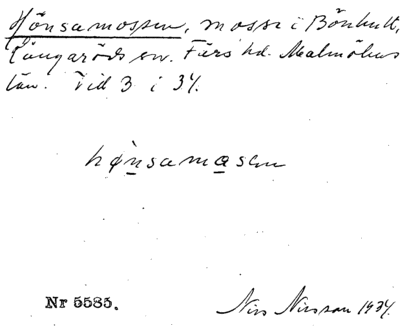 Hönsamossen, mosse i Bönhult,
Långaröds sn. Färs hd. Malmöhus
län. Vid 3 i 34.
hønsamosen
Nr 5585.
Nils Nilsson 1934.